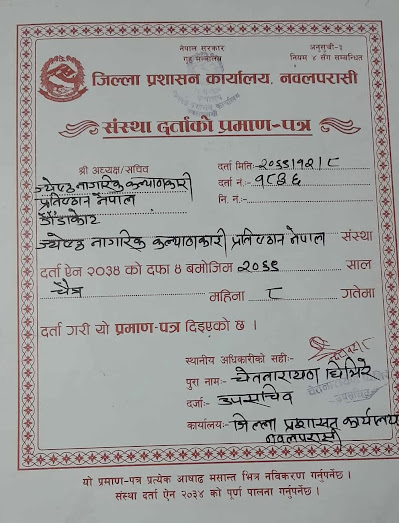 नेपाल सरकार
गृह मन्त्रालय
अनुसूची-२
नियम ४ संग सम्बन्धित
जिल्ला प्रशासन कार्यालय, नवलपरासी
संस्था दर्ताको प्रमाण-पत्र
श्री अध्यक्ष/सचिव
ज्येष्ठ नागरिक कल्याणकारी
प्रतिष्ठान नेपाल
डाँडाकोट
दर्ता मितिः- २०६६।१२।८
दर्ता नं.:- १८३६
नि. नं.:-
ज्येष्ठ नागरिक कल्याणकारी प्रतिष्ठान नेपाल संस्था
दर्ता ऐन २०३४ को दफा ४ बमोजिम २०६६ साल
चैत्र महिना ८ गतेमा
दर्ता गरी यो प्रमाण-पत्र दिइएको छ ।
स्थानीय अधिकारीको सहीः-
पुरा नामः- चेतनारायण घिमिरे
दर्जाः- उपसचिव
कार्यालयः- जिल्ला प्रशासन कार्यालय
नवलपरासी
यो प्रमाण-पत्र प्रत्येक आषाढ मसान्त भित्र नविकरण गर्नुपर्नेछ ।
संस्था दर्ता ऐन २०३४ को पूर्ण पालना गर्नुपर्नेछ ।